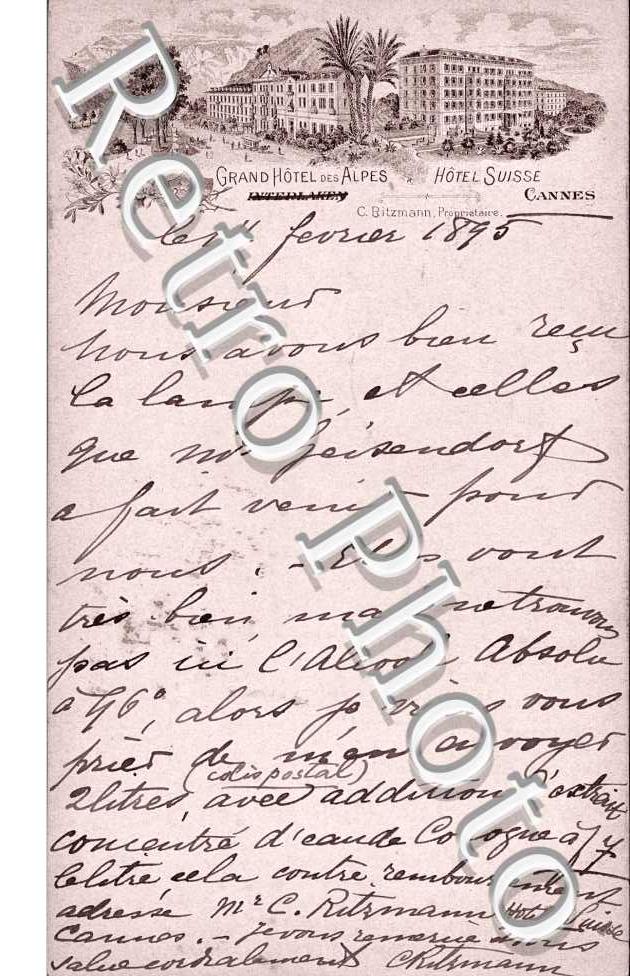 GRAND HÔTEL DES ALPES HÔTEL SUISSE
INTERLAKEN CANNES
C. Ritzmann, Propriétaire.
fevrier 1895
Monsieur
Nous avons bien reçu
la lampe, et celles
que
a fait venir pour
nous. - Elles vont
très bien, mais ne trouvons
pas ici l'Alcool Absolu
à 96°, alors je viens vous
prier de m'en envoyer
(colis postal)
2 litres, avec addition d'extrait
concentré d'eau de Cologne à
le litre cela contre remboursement
adresse Mr C. Ritzmann Hotel Suisse
Cannes. - Je vous remercie & vous
salue cordialement CRitzmann
Retro Photo